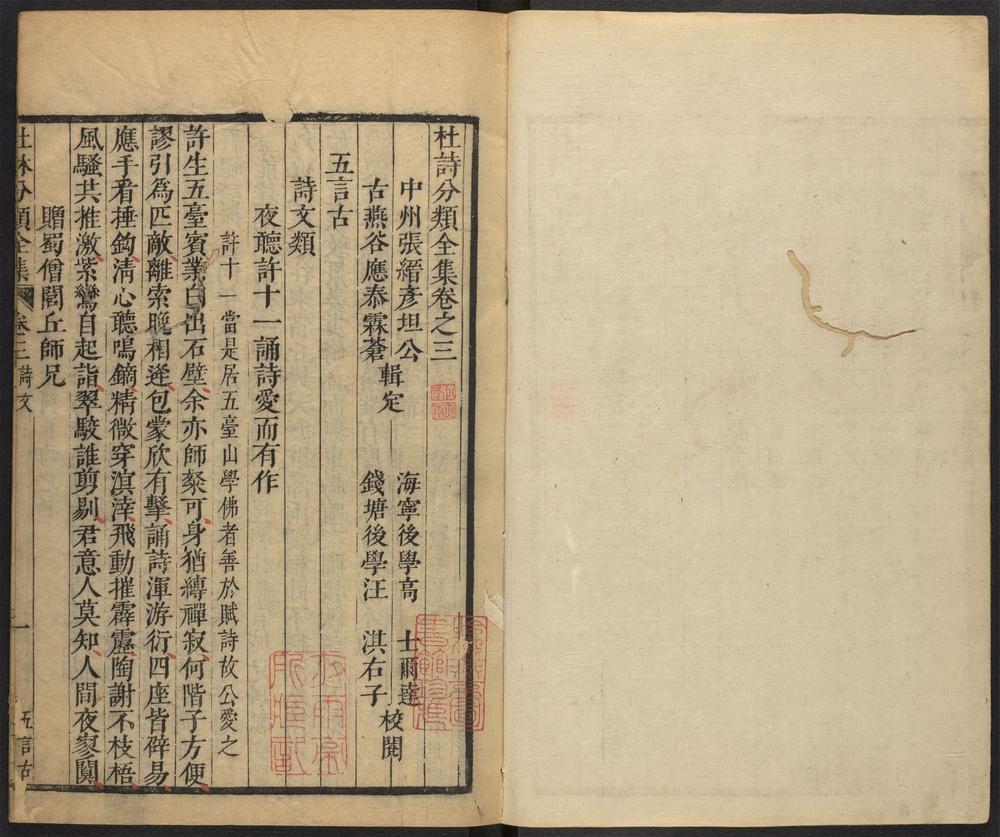 杜詩分類全集卷之三
中州張縉彥坦公
古燕谷應泰霖蒼
輯定
海寧後學高 士爾達
錢塘後學汪 淇右子
校閱
五言古
詩文類
夜聽許十一誦詩愛而有作
許十一當是居五臺山學佛者善於賦詩故公愛之
許生五臺賓業白出石壁余亦師粲可身猶縛禪寂何階子方便
謬引爲匹敵離索晚相逢包蒙欣有擊誦詩渾游衍四座皆辟易
應手看捶鉤淸心聽鳴鏑精微穿溟涬飛動摧霹靂陶謝不枝梧
風騷共推激紫鸞自起詣翠駮誰剪剔君意人莫知人間夜寥闃
贈蜀僧閭丘師兄
分類全集
卷三
詩文
一
五言古